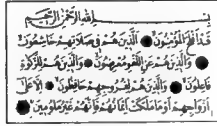 بِسْمِ اللهِ الرَّحْمٰنِ الرَّحِيْمِ
قَدْ اَفْلَحَ الْمُؤْمِنُوْنَ ● الَّذِيْنَ هُمْ فِيْ صَلَاتِهِمْ خَاشِعُوْنَ
● وَالَّذِيْنَ هُمْ عَنِ اللَّغْوِ مُعْرِضُوْنَ ● وَالَّذِيْنَ هُمْ لِلزَّكٰوةِ
فَاعِلُوْنَ ● وَالَّذِيْنَ هُمْ لِفُرُوْجِهِمْ حَافِظُوْنَ ● اِلَّا عَلٰى
اَزْوَاجِهِمْ اَوْ مَا مَلَكَتْ اَيْمَانُهُمْ فَاِنَّهُمْ غَيْرُ مَلُوْمِيْنَ ●